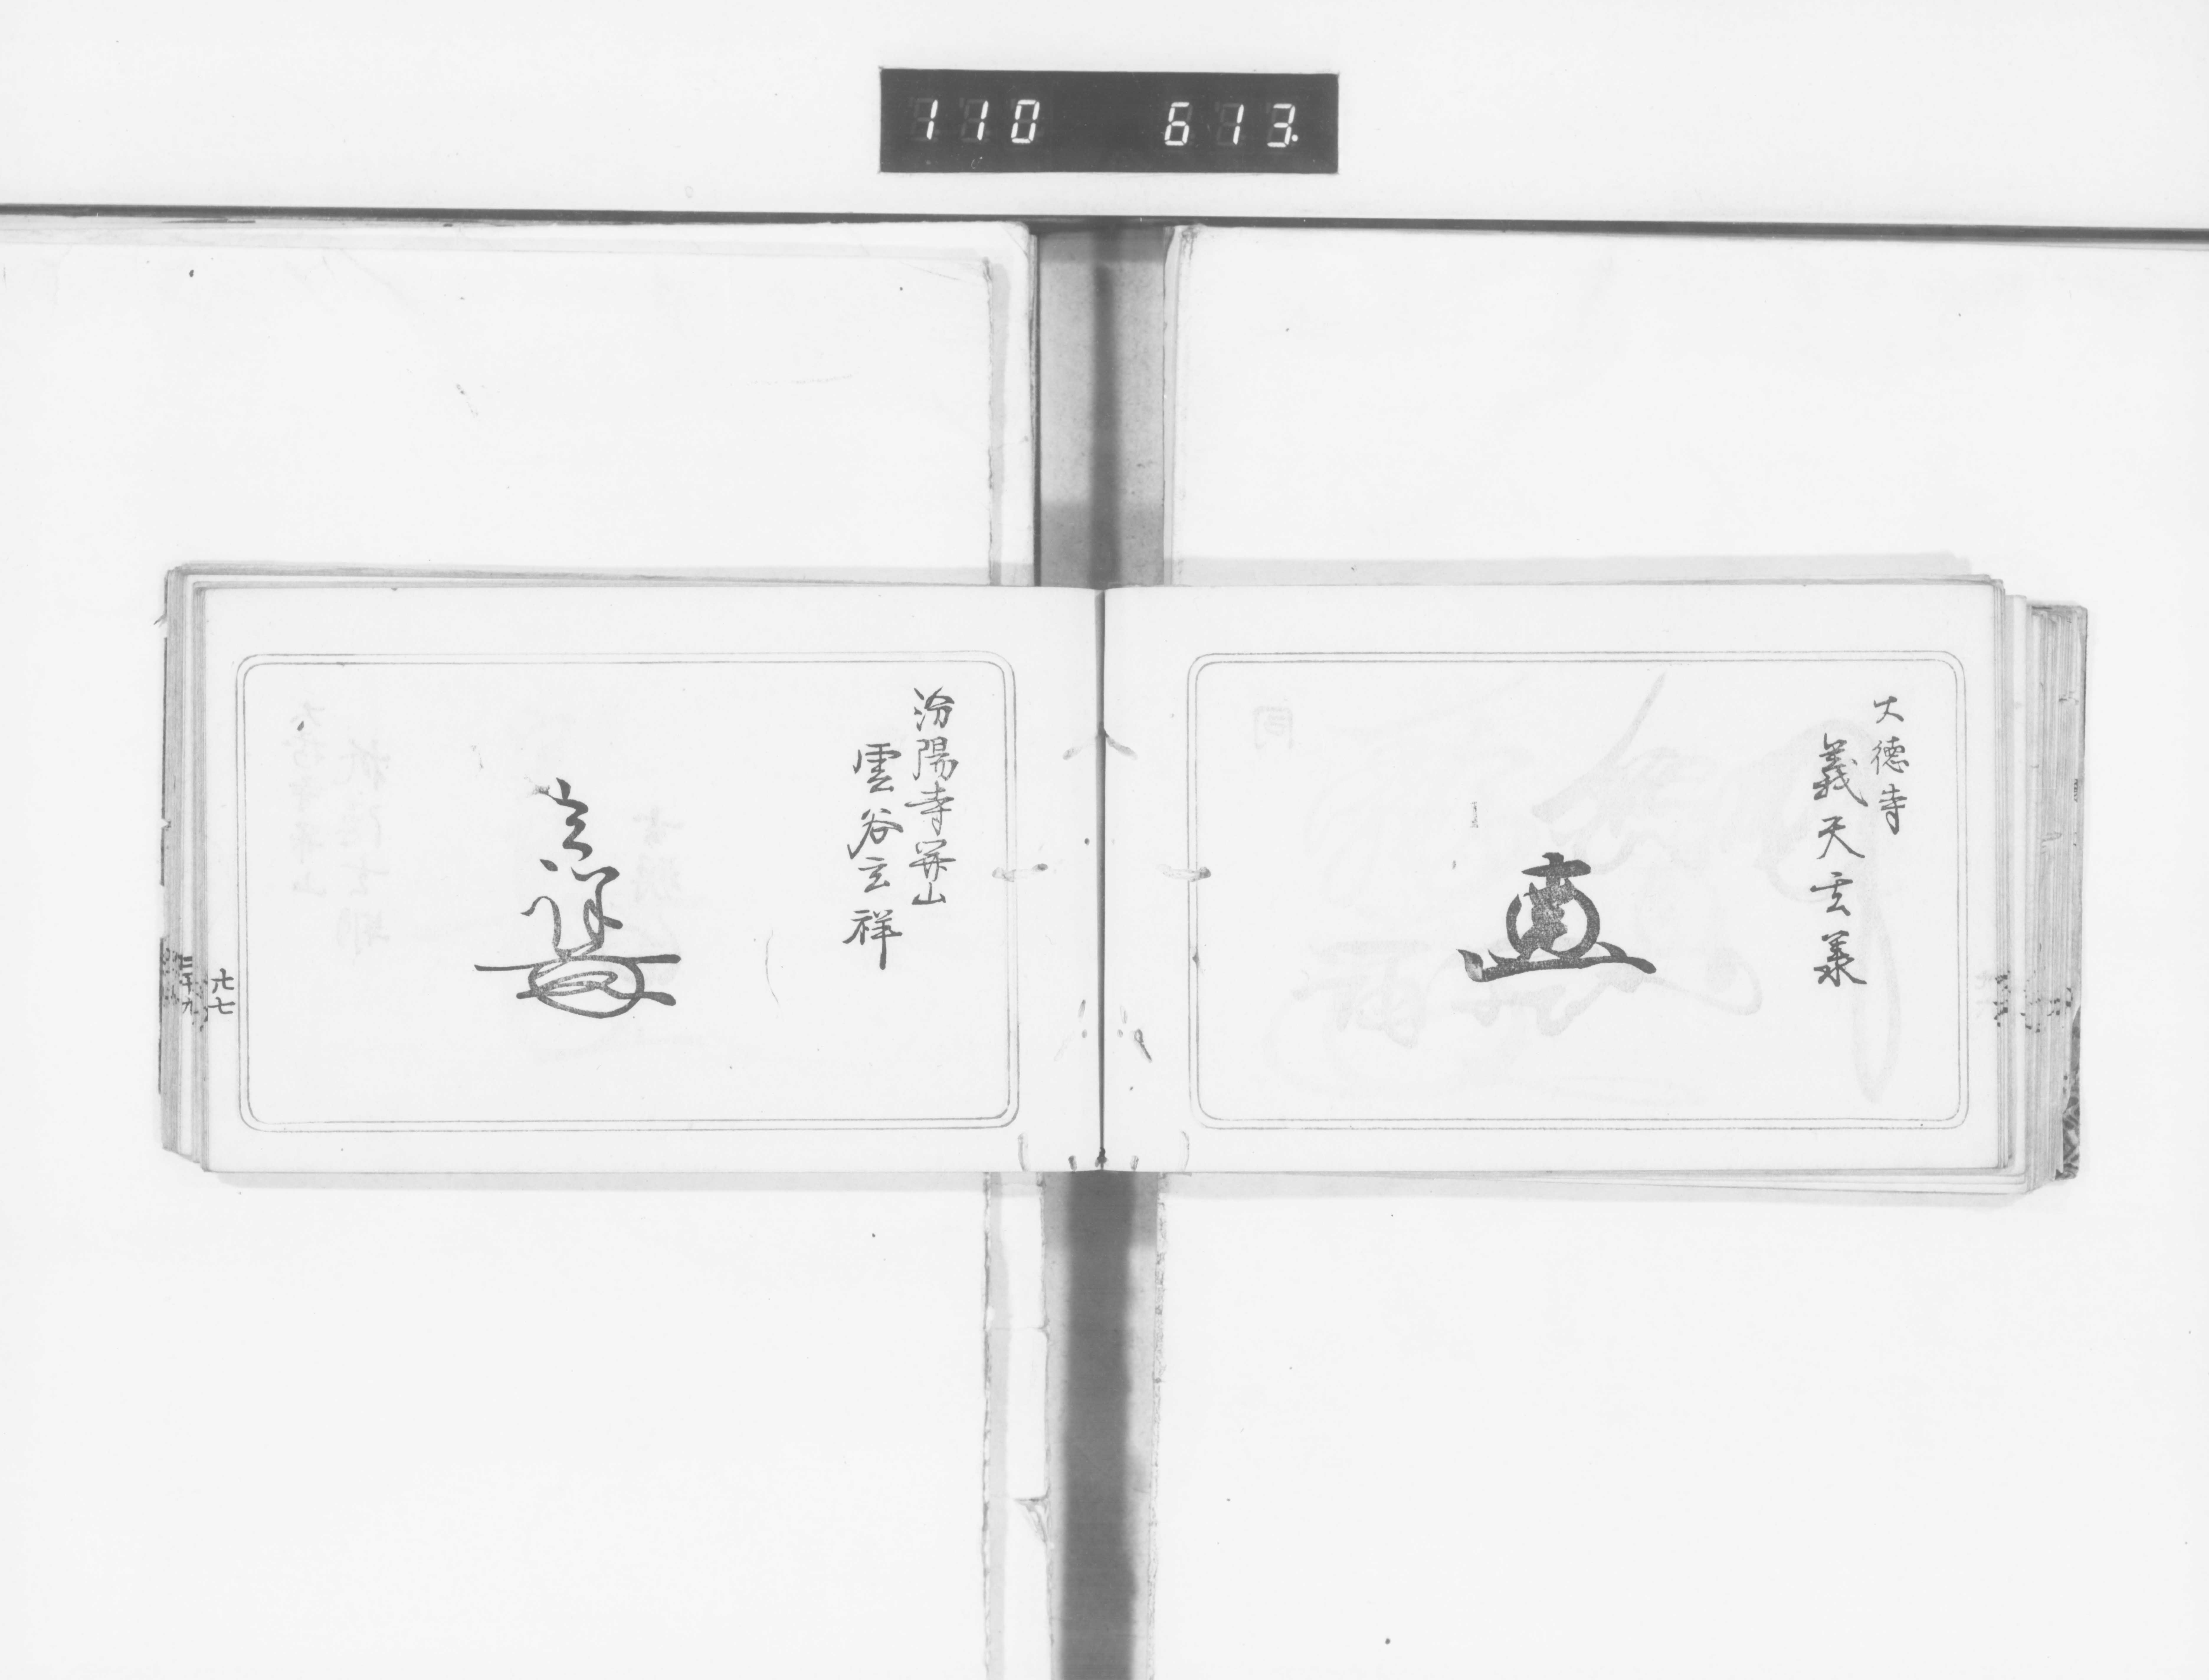 110 613.
大徳寺
義天玄承
汾陽寺開山
雲谷玄祥
玄祥
卄七